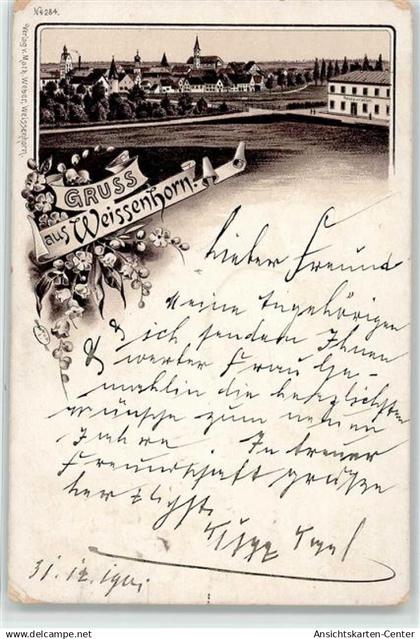 No 284.
Verlag v. Math. Weber, Weissenhorn.
GRUSS
aus Weissenhorn.
Lieber Freund
Meine Angehörigen
& ich senden Ihnen
& werter Frau Ge-
mahlin die herzlichsten
Wünsche zum neuen
Jahre. In treuer
Freundschaft grüßen
herzlichst
31.12.1901
www.delcampe.net
Ansichtskarten-Center